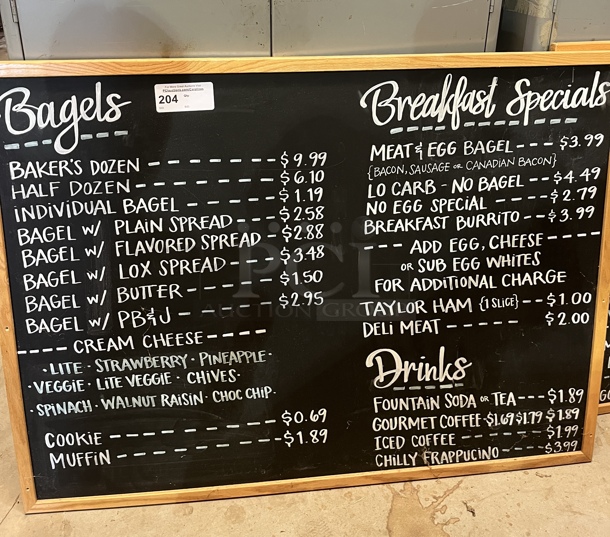 Bagels
204
BAKER'S DOZEN - - - - - - - $9.99
HALF DOZEN - - - - - - - - $6.10
INDIVIDUAL BAGEL - - - - - - $1.19
BAGEL W/ PLAIN SPREAD - - - - $2.58
BAGEL W/ FLAVORED SPREAD - - $2.88
BAGEL W/ LOX SPREAD - - - - $3.48
BAGEL W/ BUTTER - - - - - - $1.50
BAGEL W/ PB&J - - - - - - - $2.95
- - - - CREAM CHEESE - - - -
· LITE · STRAWBERRY · PINEAPPLE ·
· VEGGIE · LITE VEGGIE · CHIVES ·
· SPINACH · WALNUT RAISIN · CHOC CHIP ·
COOKIE - - - - - - - - - $0.69
MUFFIN - - - - - - - - - $1.89
Breakfast Specials
MEAT & EGG BAGEL - - - - $3.99
{BACON, SAUSAGE OR CANADIAN BACON}
LO CARB - NO BAGEL - - $4.49
NO EGG SPECIAL - - - - $2.79
BREAKFAST BURRITO - - - $3.99
- - - ADD EGG, CHEESE - - - -
OR SUB EGG WHITES
FOR ADDITIONAL CHARGE
TAYLOR HAM {1 SLICE} - - - $1.00
DELI MEAT - - - - - - $2.00
Drinks
FOUNTAIN SODA OR TEA - - - - $1.89
GOURMET COFFEE - $1.69 $1.79 $1.89
ICED COFFEE - - - - - - - $1.99
CHILLY FRAPPUCINO - - - - $3.99
PCI
AUCTION GROUP